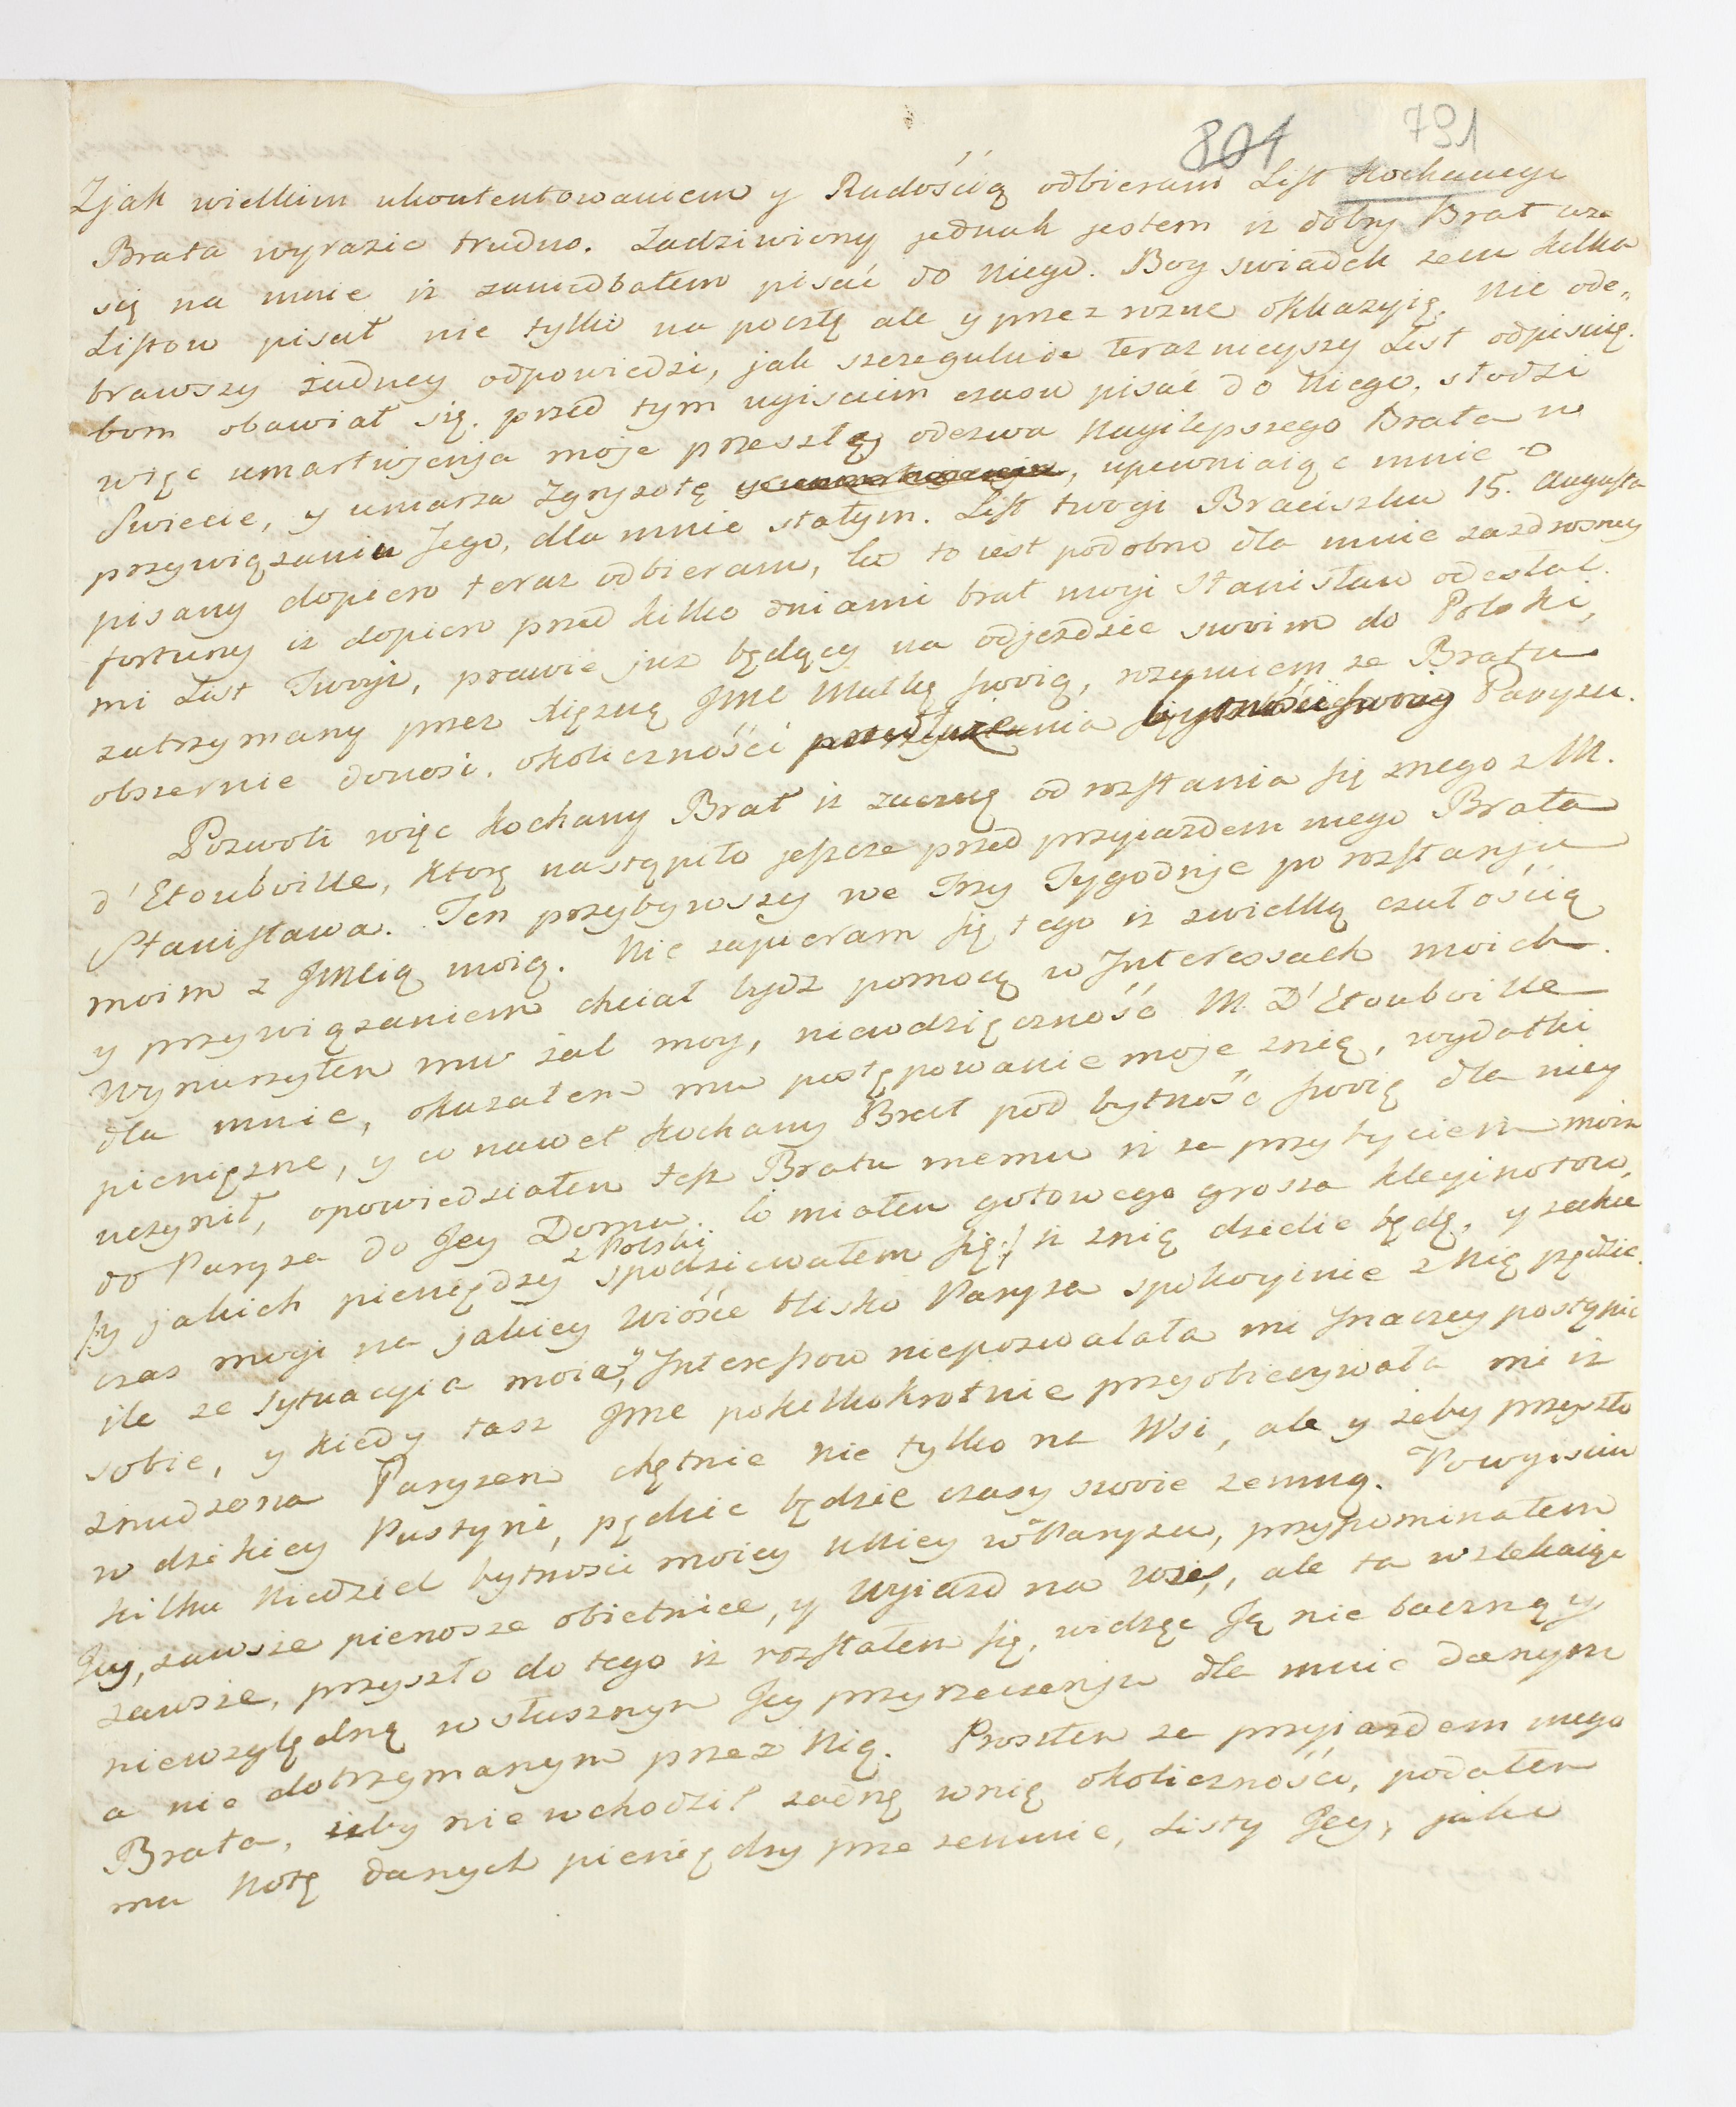 804 791
Zjak wielkim ukontentowaniem y Radością odbieram List Kochanego
Brata wyrazic trudno. Zadziwiony jednak jestem iz dobry Brat
się na mnie iz zaniedbałem pisać do Niego. Bog swiadek zem kilka
Listow pisał nie tylko na pocztę ale y przez rozne okkazyię, nie ode„
brawszy żadney odpowiedzi, jak szczegulnie teraznieyszy List odpisuię.
bom obawiał się. przed tym uyisciem czasu pisać do Niego, słodzi
więc umartwjenja moje przeszłą odezwa Nayilepszego Brata na
Swiecie, y umarza Zgryzotę, upewniaiąc mnie o
przywiązaniu Jego, dla mnie stałym. List twoyi Braciszku 15. Augusta
pisany dopiero teraz odbieram, bo to iest podobno dla mnie zazdrosney
fortuny iz dopiero przed kilko dniami brat moyi Stanisław odesłał
mi List Twoyi, prawie juz będący na odjezdzie swoim do Polski,
zatrzymany przez Xięznę Jme Matkę swoią, rozumiem ze Bratu
obszernie donosi, okoliczności przedłużenia bytności swoiey Paryzu.
Pozwoli więc Kochany Brat iz zacznę od rozstania się mego z M.
d'Etoubville, ktorę nastąpiło jeszcze przed przyiazdem mego Brata
Stanisława. Ten przybywszy we Trzy Tygodnje po rozstanju
moim z Jmcią moią. Nie zapieram się tego iz zwielką czułością
y przywiązaniem chciał bydz pomocą w Interessach moich.
Wynurzyłem mu żal moy, niewdzięczność M. D'Etoubville
dla mnie, okazałem mu postępowanie moje znią, wydatki
pieniężne, y co nawet Kochany Brat pod bytność swoię dla niey
uczynił, opowiedziałem tesz Bratu memu iz za przybyciem moim
do Paryza do Jey Domu. Co miałem gotowego grosza kleyinotow,
y jakich pieniędzy z Polski spodziewałem się, iz znię dzielic będę, y
czas moyi na jakiey Wiosce blisko Paryza spokoyinie z Nię pędzic.
ile ze sytuacyia moia, y Interessow niepozwalała mi Jnaczey postąpic
sobie, y kiedy tasz Jme pokilkokrotnie przyobiecywała mi iz
znudzona Paryzem chętnie nie tylko na Wsi, ale y żeby przyszło
w dzikiey Pustyni, pędzic będzie czasy swoie zemną. Powyisciu
kilku Niedziel bytnosci moiey uNiey w Paryzu, przypominałem
Jey, zawsze pierwsze obietnice, y Wyiazd na Wsie, ale ta wzlekaiąc
zawsze, przyszło do tego iz rozstałem się, widzęc Ją nie baczną y
niewzględną wsłusznym Jey przyrzeczenju dla mnie danym
a nie dotrzymanym przez Nią. Prosiłem za przyiazdem mego
Brata, iżby niewchodził zadnę wnię okoliczności, podałem
mu Notę danych pieniędzy prze zemnie, Listy Jey, jako